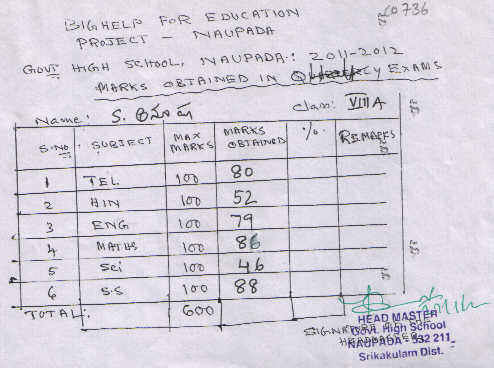 CO 736
BIGHELP FOR EDUCATION
PROJECT - NAUPADA
GOVT HIGH SCHOOL, NAUPADA: 2011-2012
MARKS OBTAINED IN QUARTERLY EXAMS
Name: S. Class: VIII A
S.NO SUBJECT MAX MARKS MARKS OBTAINED % REMARKS
1 TEL 100 80
2 HIN 100 52
3 ENG 100 79
4 MATHS 100 86
5 Sci 100 46
6 S.S 100 88
TOTAL: 600
SIGNATURE OF THE
HEADMASTER
HEAD MASTER
Govt. High School
NAUPADA - 532 211
Srikakulam Dist.